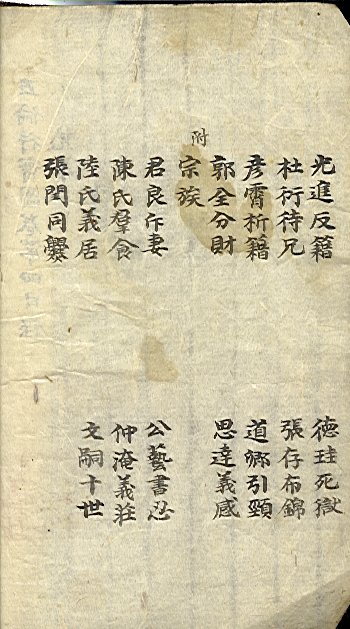 光進反籍 德珪死獄
杜衍待兄 張存布錦
彥霄析籍 道卿引頸
郭全分財 思達義感
附
宗族
君良斥妻 公藝書忍
陳氏羣食 仲淹義莊
陸氏義居 文嗣十世
張閏同爨